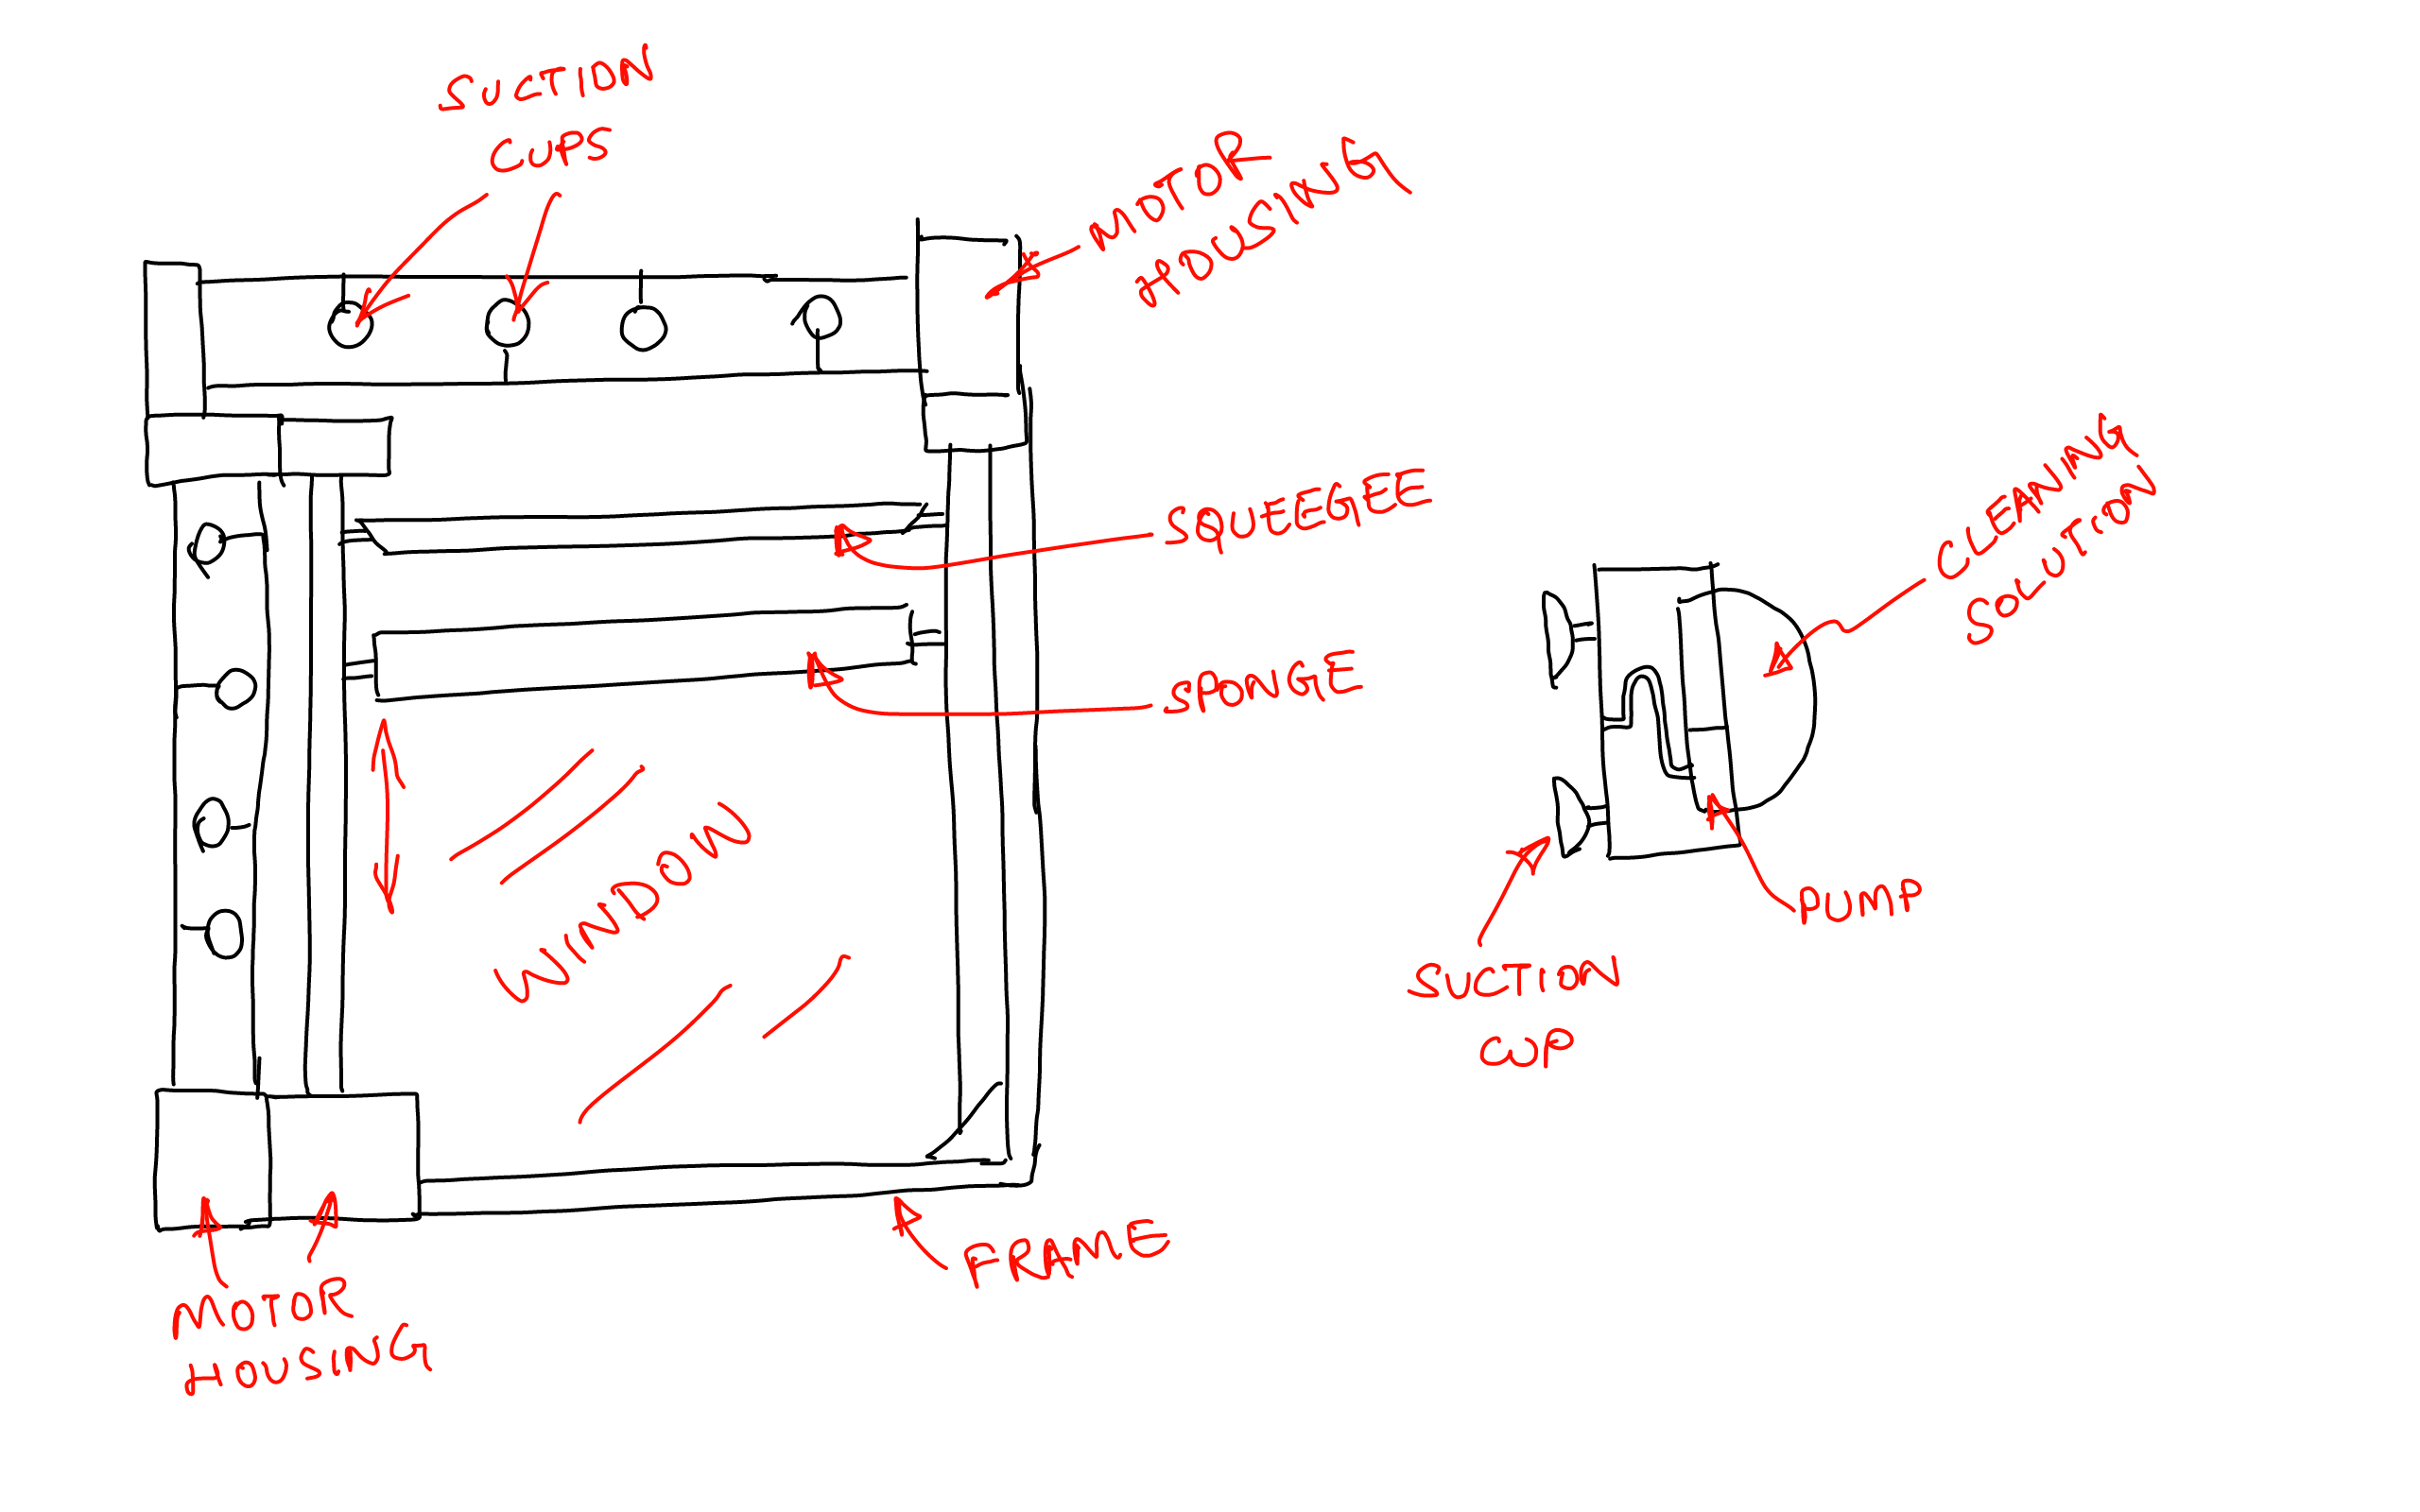 SUCTION
CUPS
MOTOR
HOUSING
SQUEGGEE
SPONGE
WINDOW
FRAME
MOTOR
HOUSING
CLEANING
SOLUTION
PUMP
SUCTION
CUP